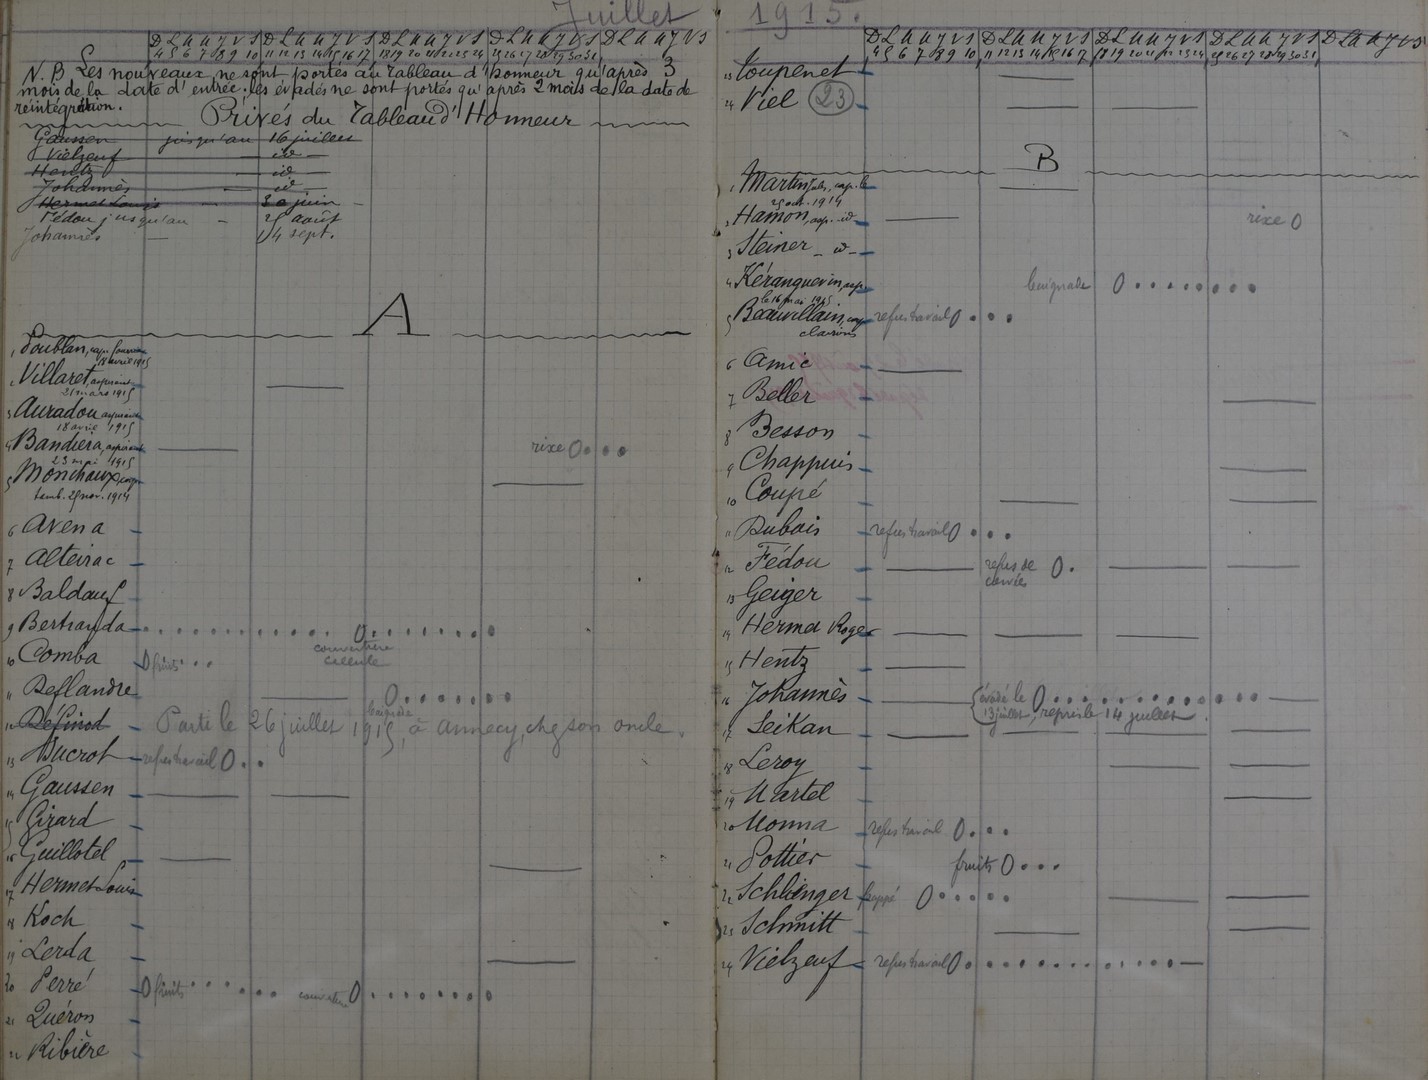 Juillet 1915.
D L M M J V S D L M M J V S D L M M J V S D L M M J V S D L M M J V S
4 5 6 7 8 9 10 11 12 13 14 15 16 17 18 19 20 21 22 23 24 25 26 27 28 29 30 31
N.B. Les nouveaux ne sont portés au tableau d'honneur qu'après 3
mois de la date d'entrée; les évadés ne sont portés qu'après 2 mois de la date de
réintégration.
Privés du Tableau d'Honneur
Gaussen jusqu'au 16 juillet
Vielzeuf — id —
Hentz — id —
Johannès — id —
Hermet Louis — 30 juin —
Fédou jusqu'au — 25 août
Johannès — 14 sept.
A
1 Doublan, cap. fourrier
18 avril 1915
2 Villaret, aspirant
21 mars 1915
3 Auradou aspirant
18 avril 1915
4 Bandiéra, aspirant rixe 0
23 mai 1915
5 Monchaux, cap.
tamb. 29 nov. 1914
6 Avena
7 Alteirac
8 Baldauf
9 Bertranda 0
couverture
cellule
10 Comba 0 fruits
11 Deflandre 0
baignade
12 Définod Parti le 26 juillet 1915, à Annecy, chez son oncle.
13 Ducrot refus travail 0
14 Gaussen
15 Girard
16 Guillotel
17 Hermet Louis
18 Koch
19 Lerda
20 Perré 0 fruits couverture 0
21 Quéron
22 Ribière
D L M M J V S D L M M J V S D L M M J V S D L M M J V S D L M M J V S
4 5 6 7 8 9 10 11 12 13 14 15 16 17 18 19 20 21 22 23 24 25 26 27 28 29 30 31
23 Toupenet
24 Viel 23
B
1 Martin Jules, cap. le
25 oct. 1914
2 Hamon, asp. id rixe 0
3 Steiner _ id _
4 Kéranguevin, asp. baignade 0
le 16 mai 1915
5 Beauvillain, cap. refus travail 0
clairons
6 Amic
7 Beller
8 Besson
9 Chappuis
10 Coupé
11 Dubois refus travail 0
12 Fédou refus de 0
corvées
13 Geiger
14 Hermet Roger
15 Hentz
16 Johannès évadé le 0
13 juillet, repris le 14 juillet.
17 Leikan
18 Leroy
19 Martel
20 Monna refus travail 0
21 Pottier fruits 0
22 Schlienger frappé 0
23 Schmitt
24 Vielzeuf refus travail 0